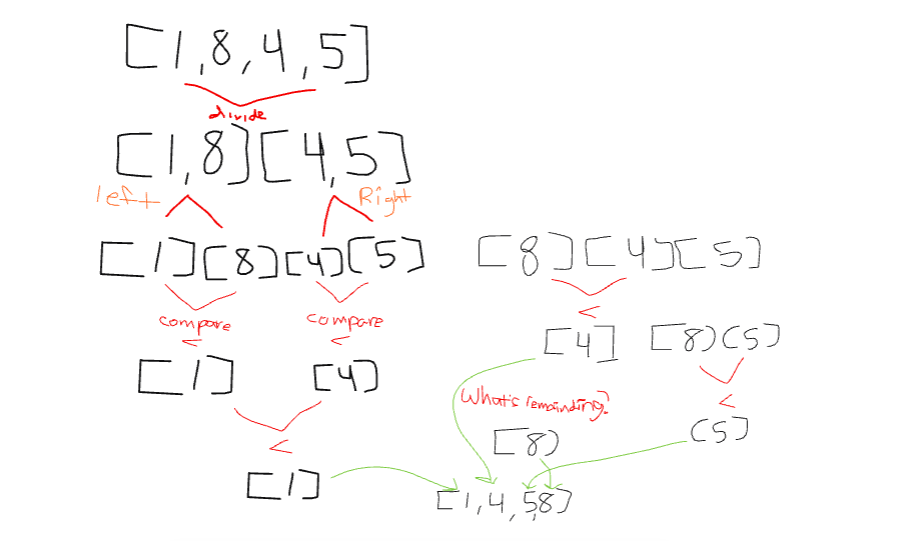 [1,8,4,5]
divide
[1,8][4,5]
left Right
[1][8][4][5]
compare compare
< <
[1] [4]
<
[1]
[8][4][5]
<
[4] [8)(5]
<
What's remainding?
[8) (5]
[1,4,5,8]